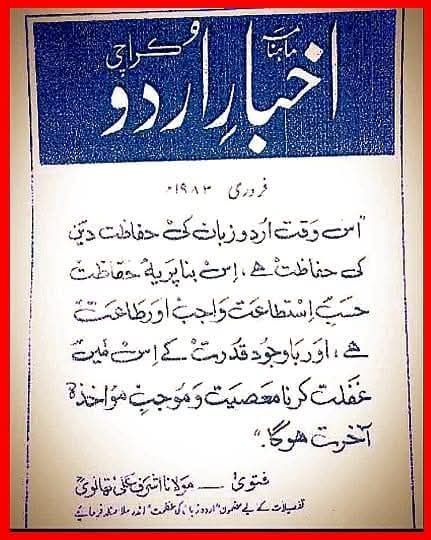 ماہنامہ
کراچی
اخبارِ اردو
فروری ۱۹۸۳ء
"اس وقت اُردو زبان کی حفاظت دین
کی حفاظت ہے، اِس بنا پر یہ حفاظت
حسبِ اِستطاعت واجب اور طاعت
ہے، اور باوجود قدرت کے اِس میں
غفلت کرنا معصیت و موجبِ مواخذہ
آخرت ہوگا۔"
فتویٰ — مولانا اشرف علی تھانویؒ
تفصیلات کے لیے مضمون "اردو زبان کی عظمت" اندر ملاحظہ فرمائیے